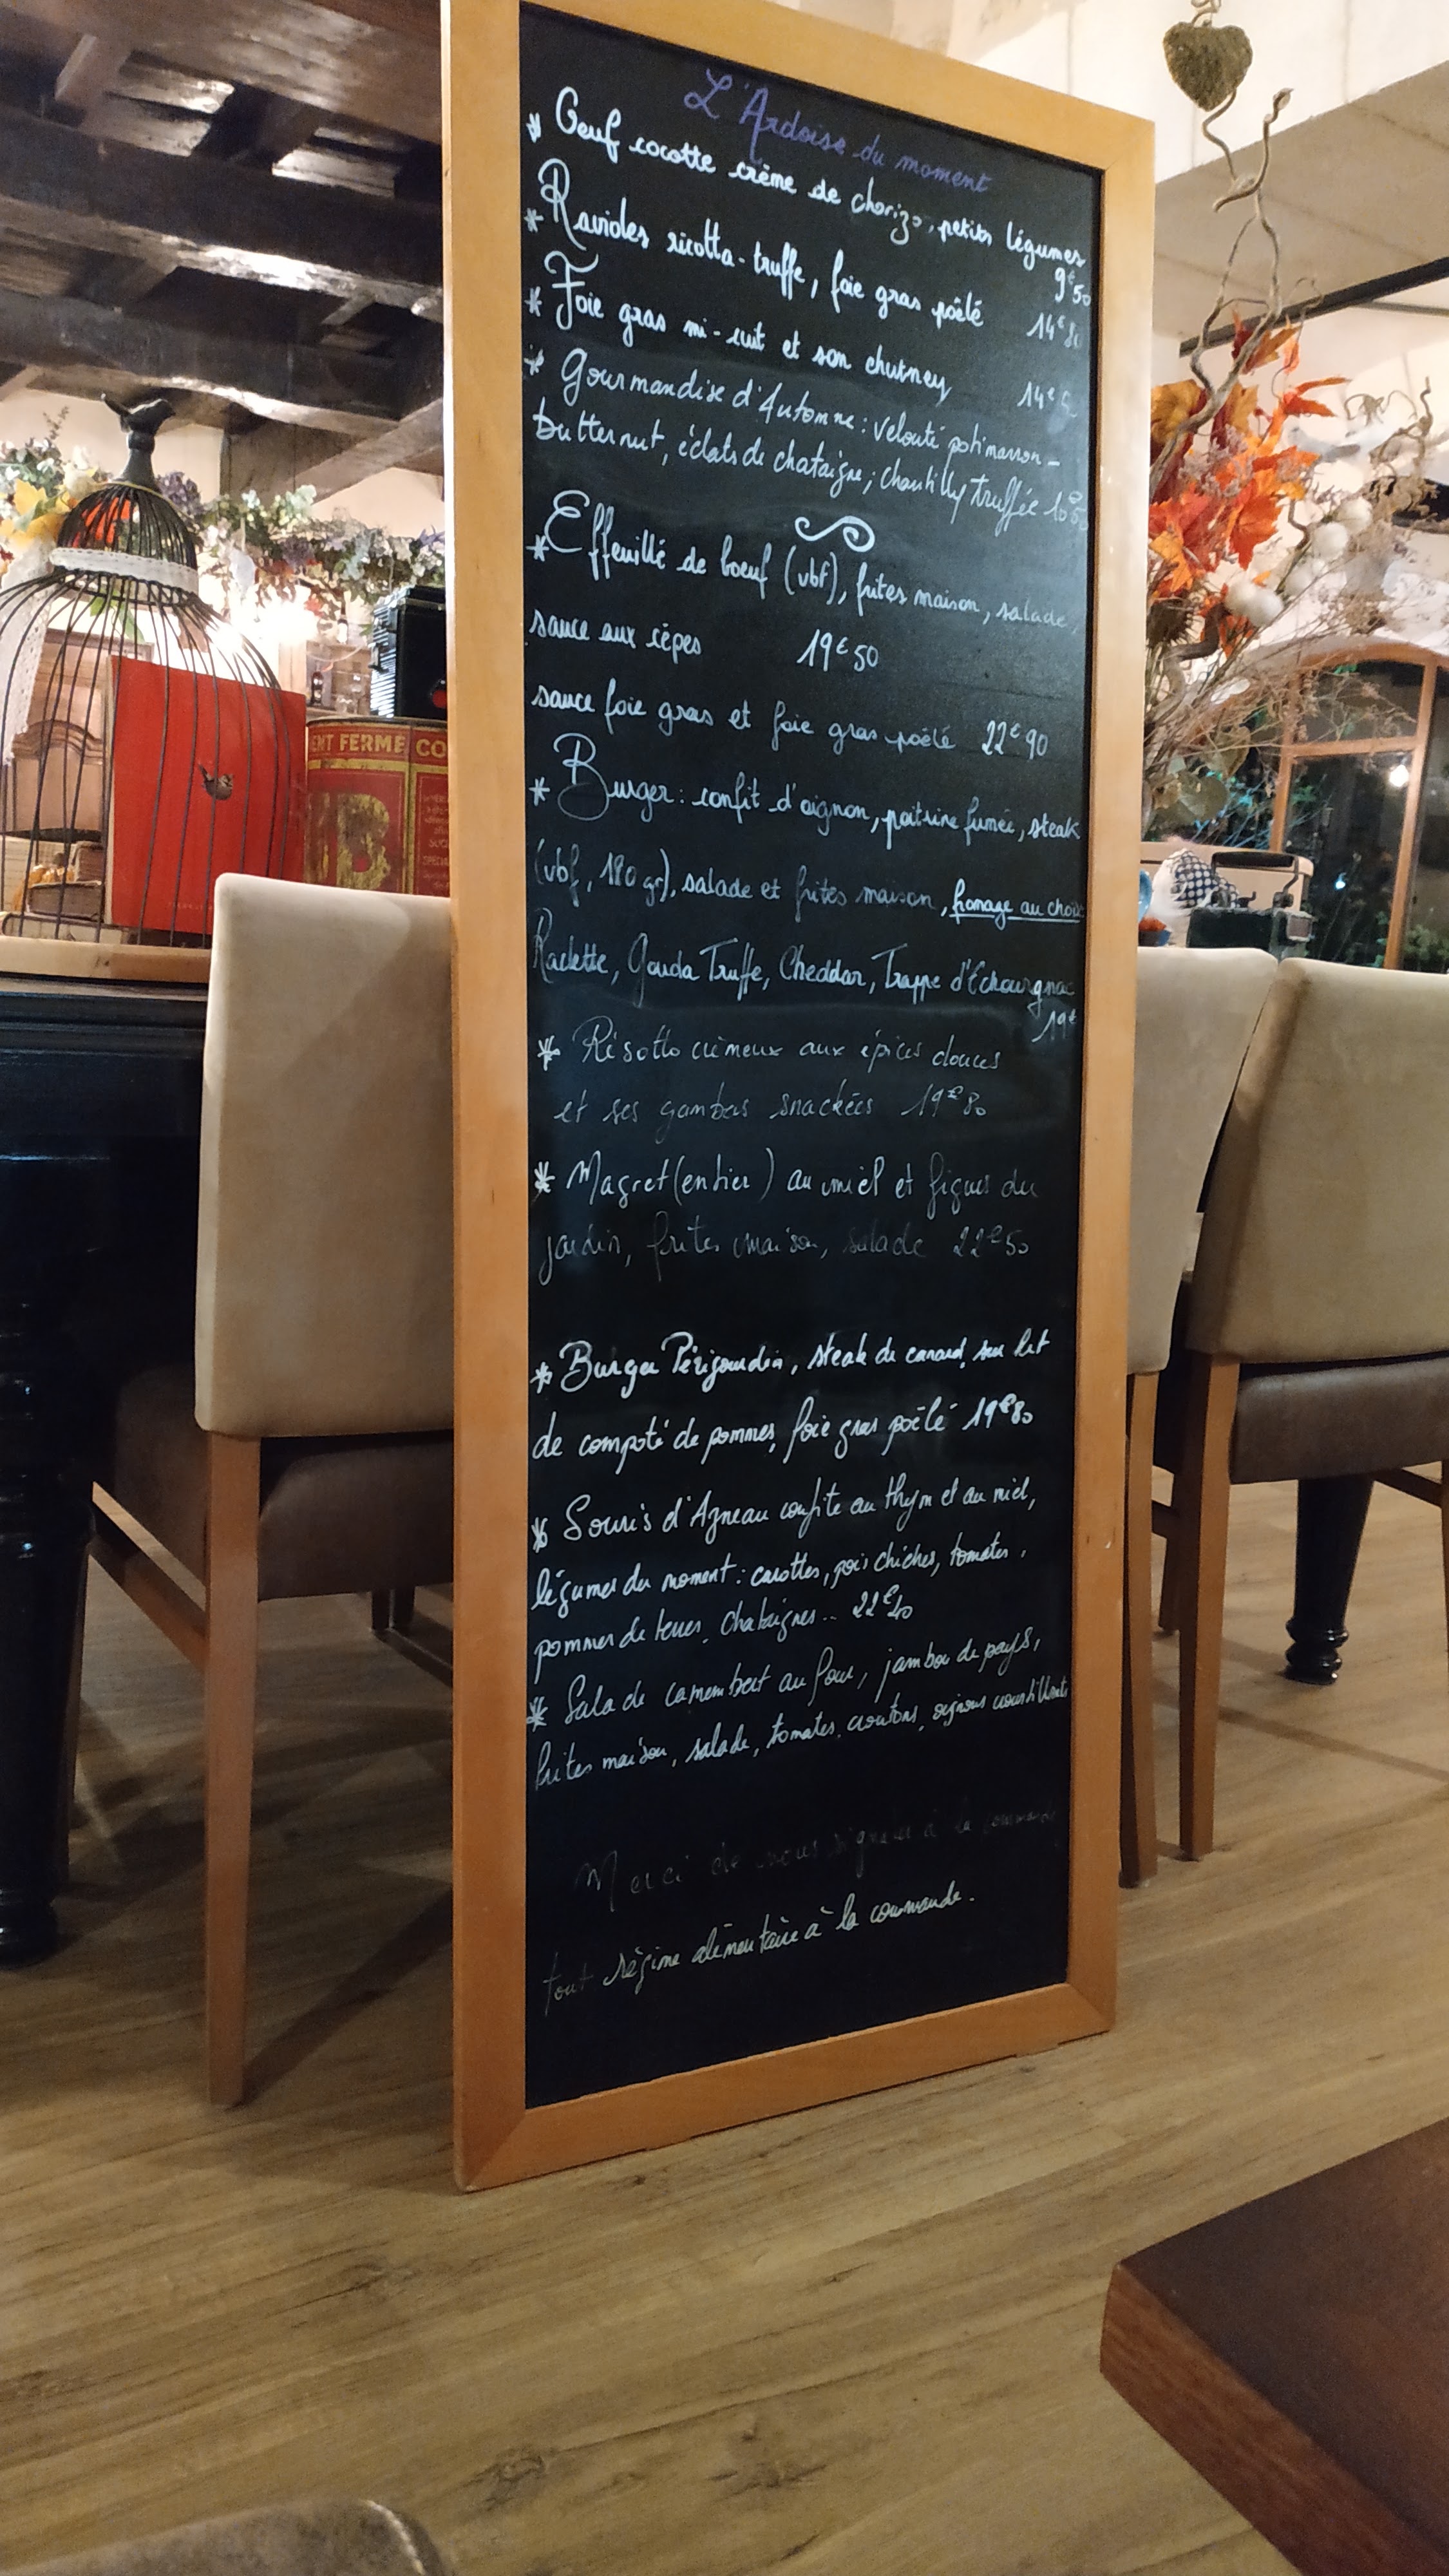 L'Ardoise du moment
* Oeuf cocotte crème de chorizo, petits légumes
9€50
* Ravioles ricotta-truffe, foie gras poêlé 14€80
* Foie gras mi-cuit et son chutney 14€5
* Gourmandise d'Automne : velouté potimarron -
butternut, éclats de chataigne ; chantilly truffée 10€50
* Effeuillé de boeuf (vbf), frites maison, salade,
sauce aux cèpes 19€50
sauce foie gras et foie gras poêlé 22€90
* Burger : confit d'oignon, poitrine fumée, steak
(vbf, 180 gr), salade et frites maison, fromage au choix
Raclette, Gouda Truffe, Cheddar, Trappe d'Echourgnac
19€
* Risotto crèmeux aux épices douces
et ses gambas snackées 19€80
* Magret (entier) au miel et figues du
jardin, frites maison, salade 22€50
* Burger Périgourdin, steak de canard, sur lit
de compoté de pommes, foie gras poêlé 19€80
* Souris d'Agneau confite au thym et au miel,
légumes du moment : carottes, pois chiches, tomates,
pommes de terres, chataignes... 22€40
* Salade camembert au four, jambon de pays,
frites maison, salade, tomates, croutons, oignons croustillants
Merci de nous signaler à la commande
tout régime alimentaire à la commande.
ENT FERMÉ CO
B